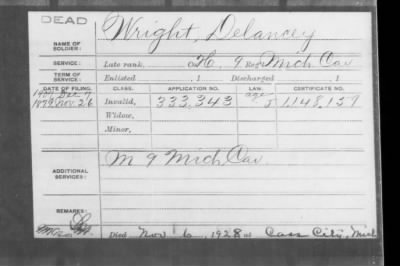 DEAD
Wright, Delancey
NAME OF SOLDIER:
SERVICE: Late rank, Co H, 9 Reg't Mich Cav
TERM OF SERVICE: Enlisted , 1 Discharged , 1
DATE OF FILING. CLASS. APPLICATION NO. LAW. CERTIFICATE NO.
1907 Dec 7 age
1879 Nov. 26 Invalid, 333,343 1,148,159
Widow,
Minor,
ADDITIONAL SERVICES: M 9 Mich Cav
REMARKS:
Died Nov 6, 1928 at Cass City, Mich